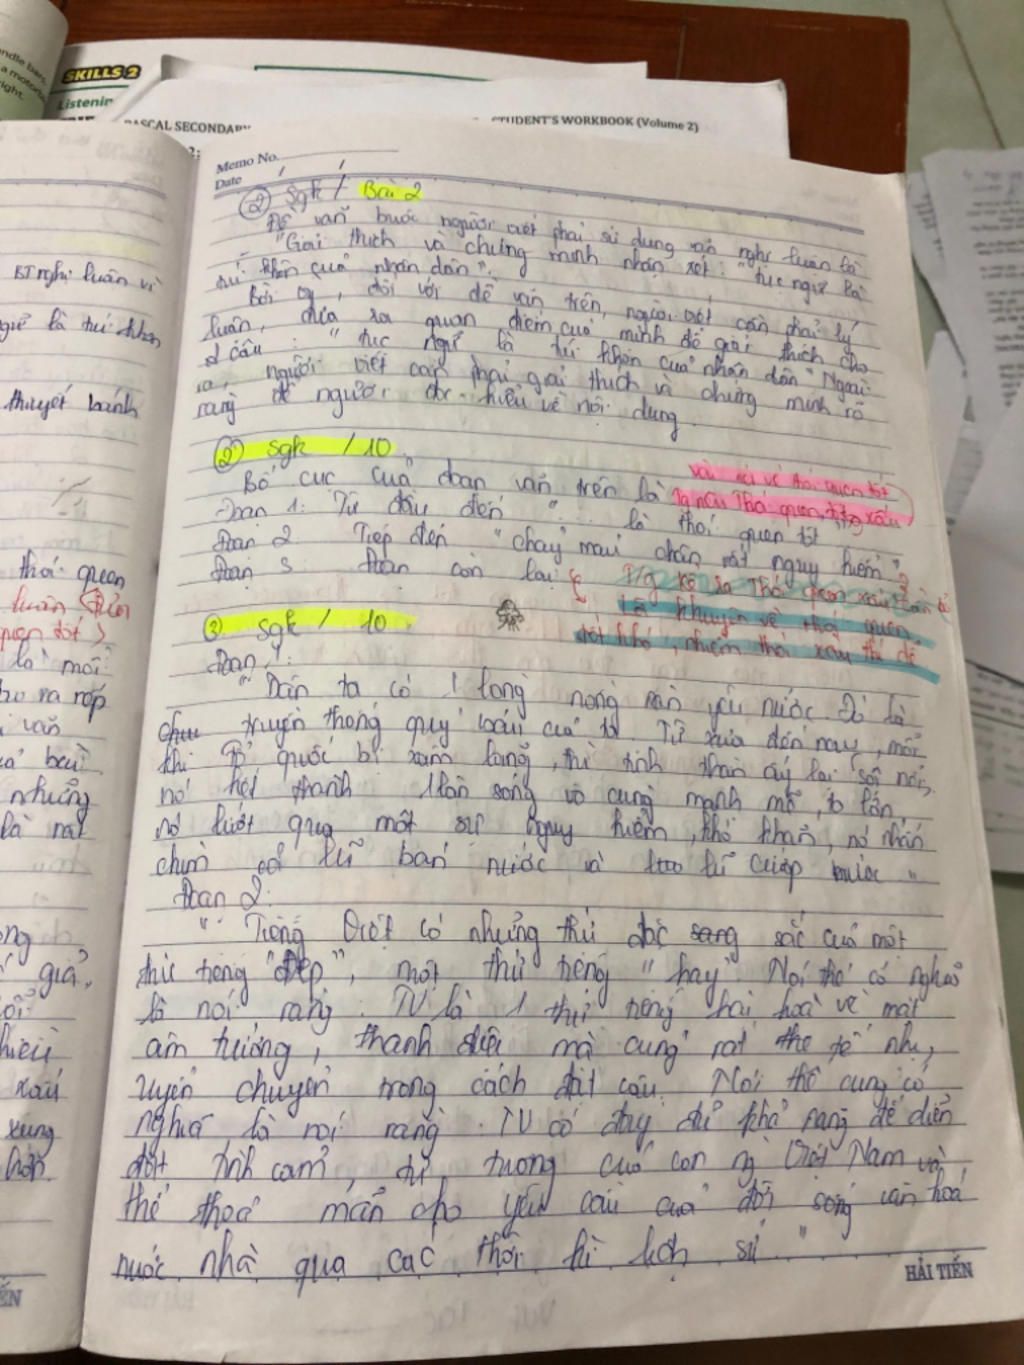 SKILLS 2
Listenin
PASCAL SECONDARY
STUDENT'S WORKBOOK (Volume 2)
ndle bars
a motor
ight.
Memo No.
Date / /
BT nghị luân vì
thuyết
thói quen
là mới
ra rap
văn
bài
những
là rất
giả,
hiểu
xấu
xung
hơn
② Sgk / Bài 2
Đề văn buộc người viết phải sử dụng văn nghị luân là
"Giải thích và chứng minh nhân xét: "tục ngữ là
túi khôn của nhân dân".
Bởi vậy, đối với đề văn trên, người viết cần phải lý
luân, đưa ra quan điểm của mình để giải thích cho
câu: "tục ngữ là túi khôn của nhân dân" Ngoài
ra, người viết cần phải giải thích và chứng minh rõ
ràng để người đọc hiểu về nội dung
② Sgk / 10
Bố cục của đoạn văn trên là
Đoạn 1: Từ đầu đến "... là thói quen tốt"
Đoạn 2 Tiếp đến "chảy máu chân rất nguy hiểm"
Đoạn 3 Đoạn còn lại
T/g kể ra Thói quen xấu
khuyên về thói quen
tốt khó, nhiễm thói xấu thì dễ
③ Sgk / 10
Đoạn 1:
"Dân ta có 1 lòng nồng nàn yêu nước. Đó là
truyền thống quý báu của ta. Từ xưa đến nay, mỗi
khi Tổ quốc bị xâm lăng, thì tinh thần ấy lại sôi nổi,
nó kết thành 1 làn sóng vô cùng mạnh mẽ, to lớn,
nó lướt qua một sự nguy hiểm, khó khăn, nó nhấn
chìm cả lũ bán nước và lũ cướp nước"
Đoạn 2:
"Tiếng Việt có những thứ đặc sắc của một
thứ tiếng "đẹp", một thứ tiếng "hay" Nói thế có nghĩa
là nói rằng: TV là 1 thứ tiếng hài hoà về mặt
âm tưởng, thanh điệu mà cũng rất tế nhị,
uyển chuyển trong cách đặt câu. Nói thế cũng có
nghĩa là nói rằng: TV có đầy đủ khả năng để diễn
đạt tình cảm, tư tưởng của con ng Việt Nam và
thể thoả mãn cho yêu cầu của đời sống văn hoá
nước nhà qua các thời kì lịch sử."
HẢI TIẾN